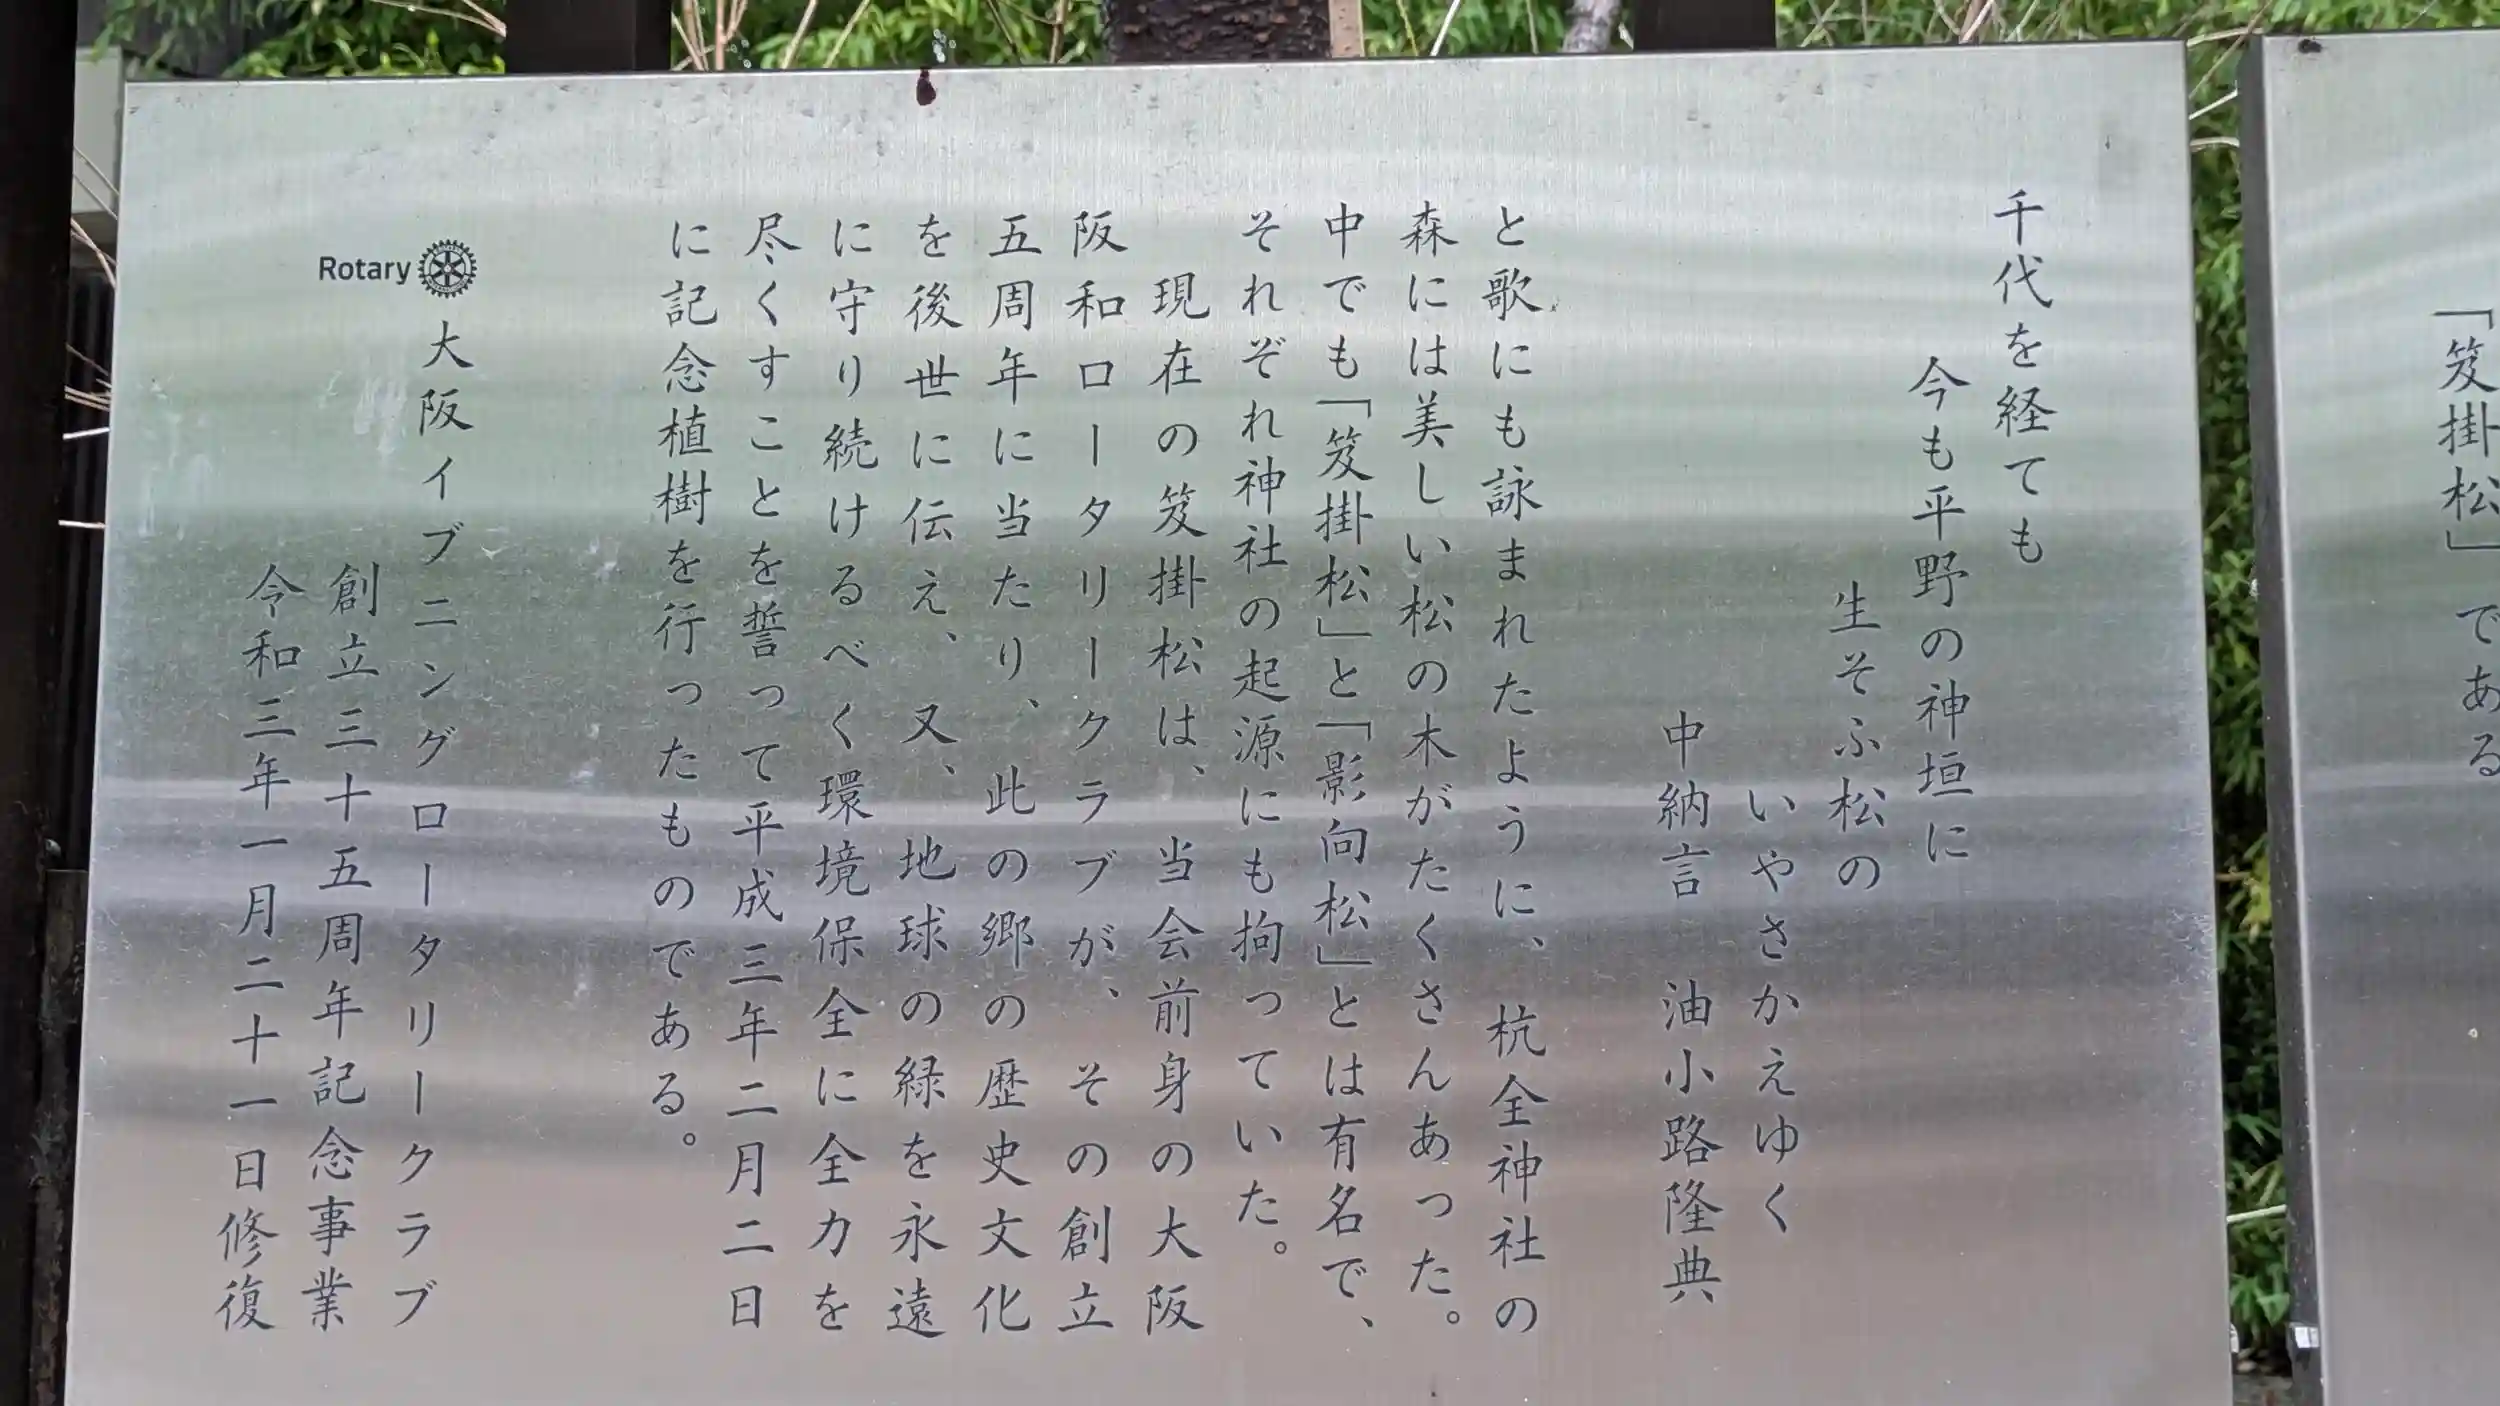 「笈掛松」である
千代を経ても
今も平野の神垣に
生そふ松の
いやさかえゆく
中納言　油小路隆典
と歌にも詠まれたように、杭全神社の
森には美しい松の木がたくさんあった。
中でも「笈掛松」と「影向松」とは有名で、
それぞれ神社の起源にも拘っていた。
現在の笈掛松は、当会前身の大阪
阪和ロータリークラブが、その創立
五周年に当たり、此の郷の歴史文化
を後世に伝え、又、地球の緑を永遠
に守り続けるべく環境保全に全力を
尽くすことを誓って平成三年二月二日
に記念植樹を行ったものである。
Rotary
大阪イブニングロータリークラブ
創立三十五周年記念事業
令和三年一月二十一日修復